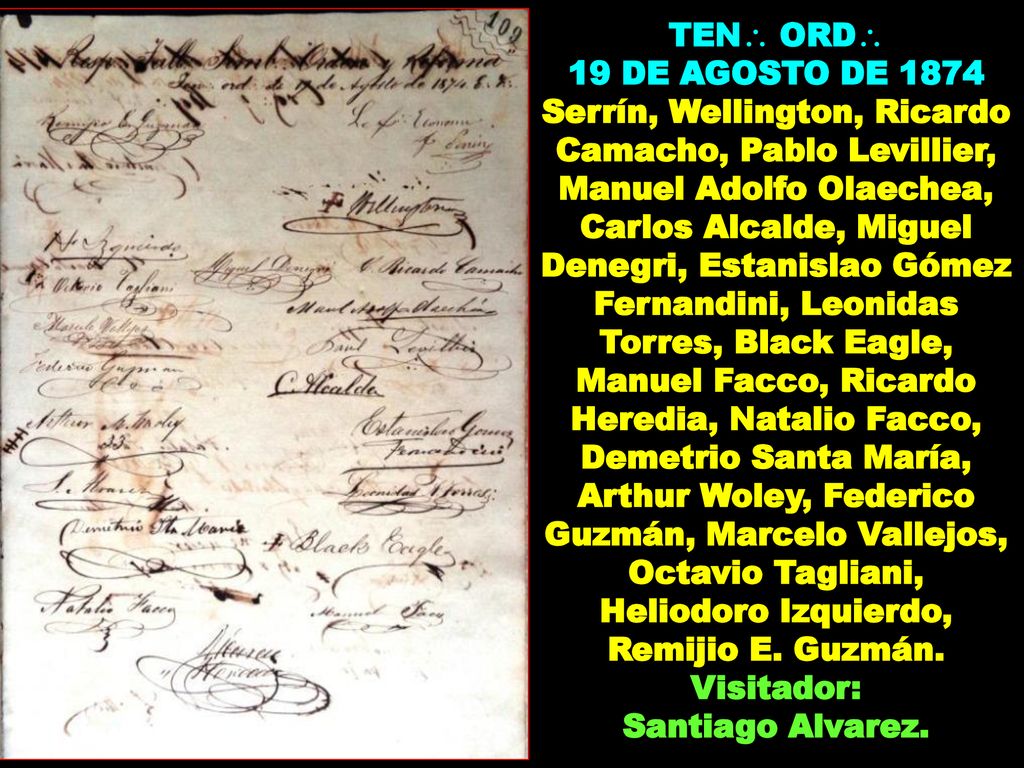 109
Resp. Log. Simb. Orden y Reforma
Ten. ord. de 19 de Agosto de 1874 E. V.
Remijio E. Guzman
Le fr. Economo
Serrin
Wellington
H. Izquierdo
Miguel Denegri
C. Ricardo Camacho
Octavio Tagliani
Man.l Adolfo Olaechea
Marcelo Vallejos
Federico Guzman
C. Alcalde
Arthur M. Woley
33
Estanislao Gomez
Fernandini
S. Alvarez
Leonidas Torres
Demetrio Sta. Maria
Black Eagle
Natalio Facco
Manuel Facco
TEN∴ ORD∴
19 DE AGOSTO DE 1874
Serrín, Wellington, Ricardo
Camacho, Pablo Levillier,
Manuel Adolfo Olaechea,
Carlos Alcalde, Miguel
Denegri, Estanislao Gómez
Fernandini, Leonidas
Torres, Black Eagle,
Manuel Facco, Ricardo
Heredia, Natalio Facco,
Demetrio Santa María,
Arthur Woley, Federico
Guzmán, Marcelo Vallejos,
Octavio Tagliani,
Heliodoro Izquierdo,
Remijio E. Guzmán.
Visitador:
Santiago Alvarez.